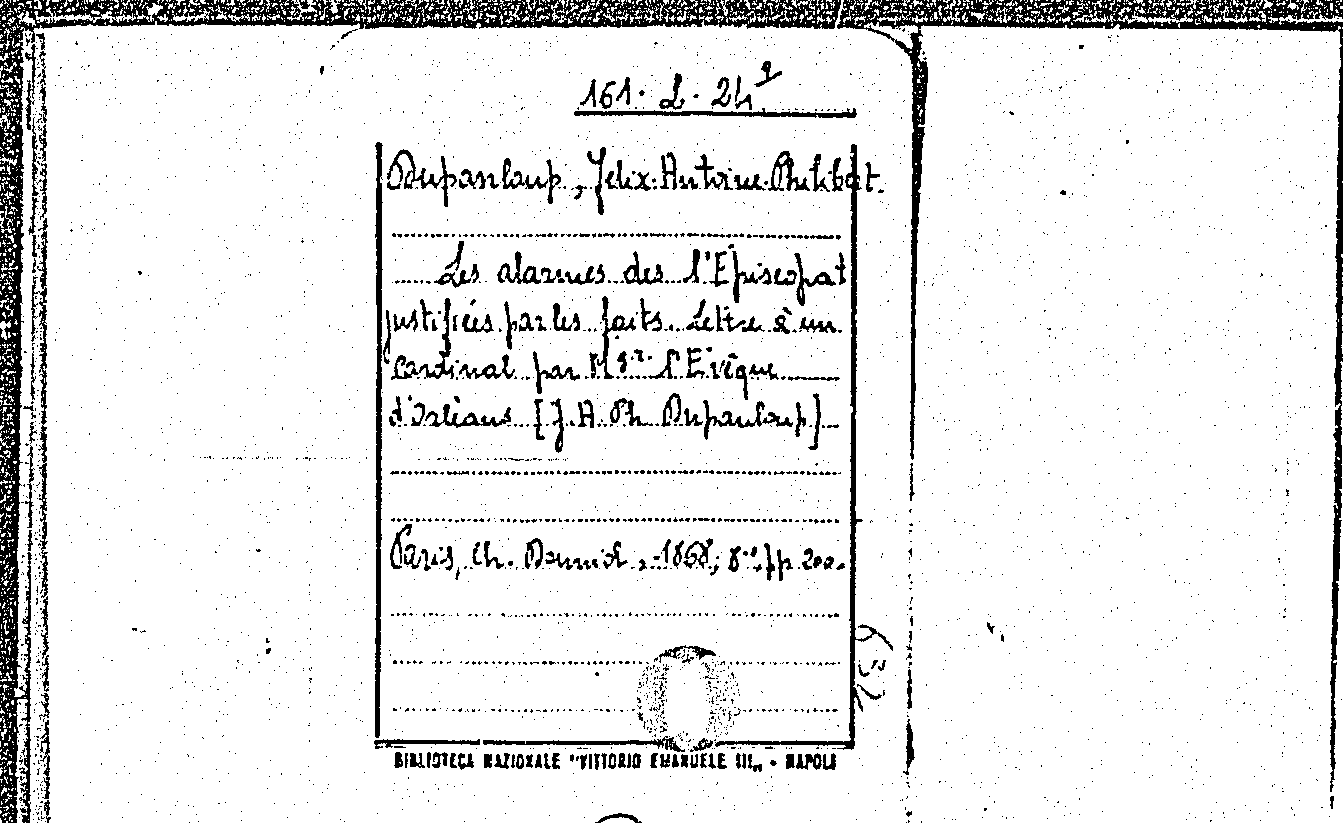 161. L. 24⁹
Dupanloup, Felix-Antoine-Philibert.
Les alarmes des l'Episcopat
justifiées par les faits. Lettre à un
Cardinal par Mgr. l'Evêque
d'Orléans [F. A. Ph. Dupanloup]
Paris, Ch. Douniol, 1868, 8º, pp 200.
BIBLIOTECA NAZIONALE "VITTORIO EMANUELE III" - NAPOLI